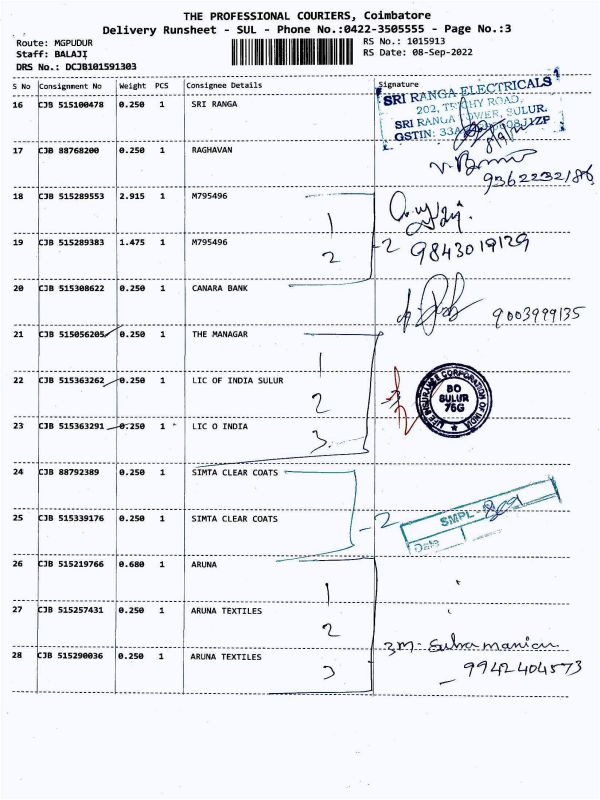 THE PROFESSIONAL COURIERS, Coimbatore
Delivery Runsheet - SUL - Phone No.:0422-3505555 - Page No.:3
Route: MGPUDUR
RS No.: 1015913
Staff: BALAJI
RS Date: 08-Sep-2022
DRS No.: DCJB101591303
S No Consignment No Weight PCS Consignee Details Signature
16 CJB 515100478 0.250 1 SRI RANGA
SRI RANGA ELECTRICALS
202, TRICHY ROAD,
SRI RANGA TOWER, SULUR.
GSTIN: 33A
17 CJB 88768200 0.250 1 RAGHAVAN
9362232186
18 CJB 515289553 2.915 1 M795496 1
19 CJB 515289383 1.475 1 M795496 2 -2 9843019129
20 CJB 515308622 0.250 1 CANARA BANK
9003999135
21 CJB 515056205 0.250 1 THE MANAGAR 1
22 CJB 515363262 0.250 1 LIC OF INDIA SULUR 2
LIFE INSURANCE CORPORATION OF INDIA
BO
SULUR
76G
23 CJB 515363291 0.250 1 LIC O INDIA 3
24 CJB 88792389 0.250 1 SIMTA CLEAR COATS
25 CJB 515339176 0.250 1 SIMTA CLEAR COATS -2
SMPL
Date
26 CJB 515219766 0.680 1 ARUNA 1
27 CJB 515257431 0.250 1 ARUNA TEXTILES 2
28 CJB 515290036 0.250 1 ARUNA TEXTILES 3
9942404573